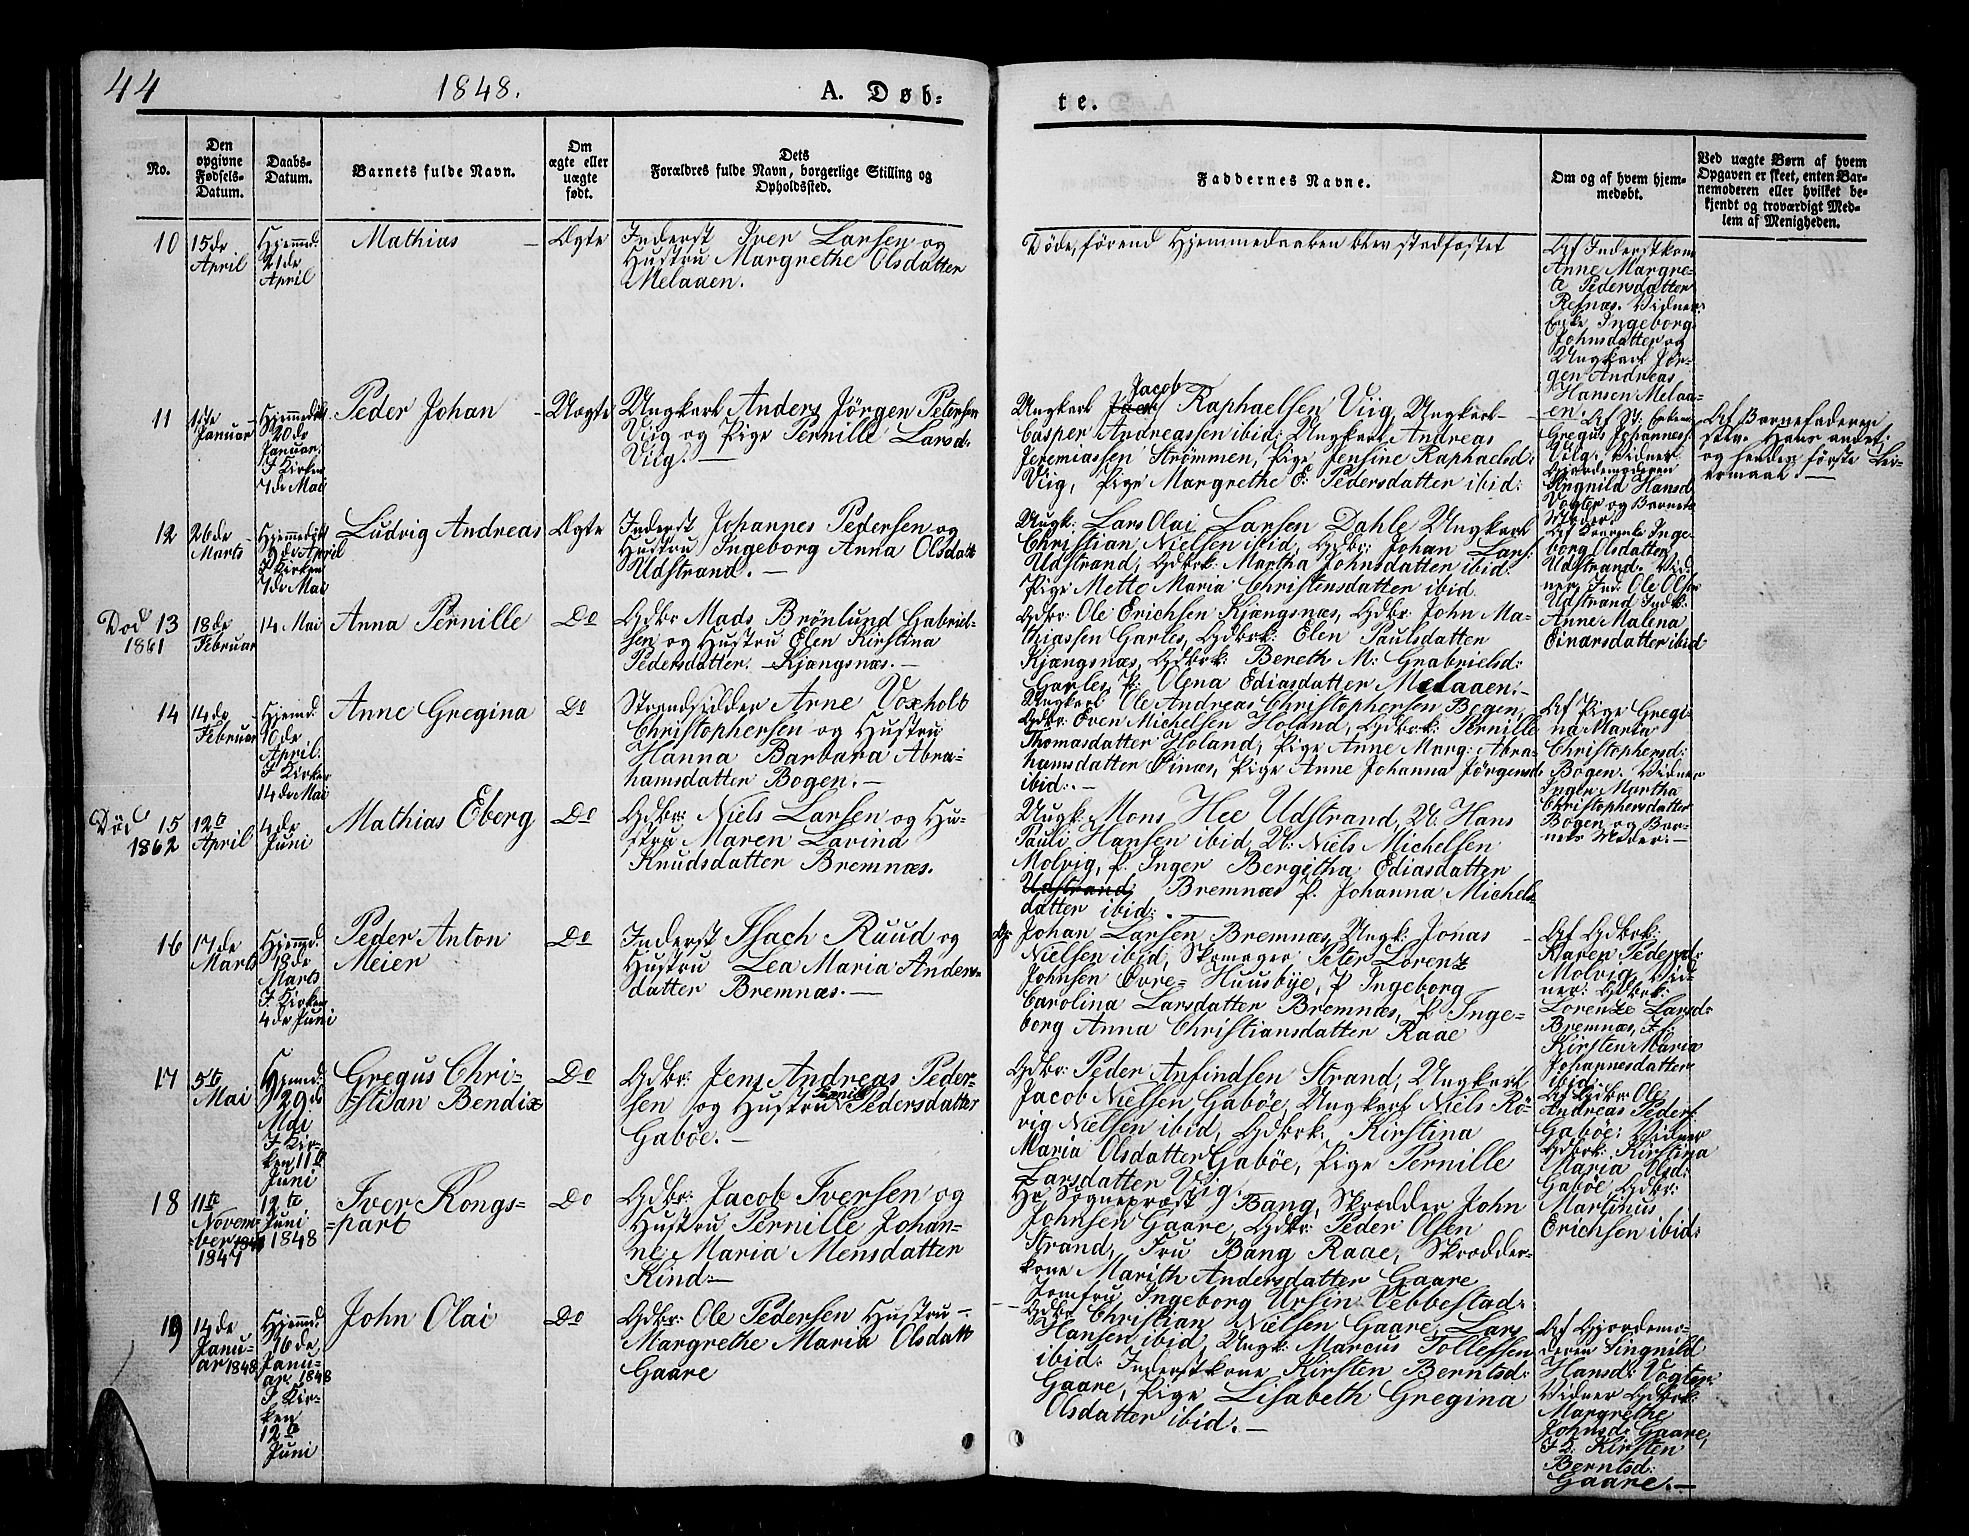 44
1848.
A. Døb=
te.
No.
Den
opgivne
Fødsels-
Datum.
Daabs-
Datum.
Barnets fulde Navn.
Om
ægte eller
uægte
født.
Dets
Forældres fulde Navn, borgerlige Stilling og
Opholdssted.
Faddernes Navne.
Om og af hvem hjem-
medøbt.
Ved uægte Børn af hvem
Opgaven er skeet, enten Bar-
nemoderen eller hvilket be-
kjendt og troværdigt Med-
lem af Menigheden.
10
15de
April
Hjemmed:
21de
April
Mathias
Ægte
Inderst Iver Larsen og
Hustru Margrethe Olsdatter
Melaaen.
Døde, førend Hjemmedaaben blev stadfæstet
Af Inderstkone
Anne Margre-
ta Pedersdatter
Refnæs. Vidner
Enke Ingeborg
Johnsdatter og
Ungkarl Jør-
gen Andreas
Hansen Melaa-
en.
11
1ste
Januar
Hjemmedøbt
20de
Januar.
I Kirken
7de Mai
Peder Johan
Uægte
Ungkarl Anders Jörgen Petersen
Viig og Pige Pernille Larsd:
Viig.
Ungkarl Jacob Raphaelsen Viig, Ungkarl
Casper Andreassen ibid: Ungkarl Andreas
Jeremiassen Strömmen, Pige Jensine Raphaelsd:
Viig, Pige Margrethe E: Pedersdatter ibid:
Gregus Johannes:
Viig. Vidner
Gjordemoderen
Singnild Hansd:
Vogter og Barnets
Moder.
Af Barnefaderen
selv. Hans andet
og hendes første Lei-
ermaal.
12
26de
Marts
Hjemmedøbt
9de April
I Kirken
7de Mai
Ludvig Andreas
Ægte
Inderst Johannes Pedersen og
Hustru Ingeborg Anna Olsdatt
Udstrand.
Ungk: Lars Olai Larsen Dahle Ungkarl
Christian Nielsen ibid, Gdbr: Johan Lars:
Udstrand, Gdbrk: Martha Johnsdatter ibid:
Pige Mette Maria Christensdatter ibid
borg Olsdatter
Udstrand. Vid
ner Ind: Ole Ols:
Udstrand Indk:
Anne Malena
Einarsdatter ibid
Død
1861
13
18de
Februar
14 Mai
Anna Pernille
Do
Gdbr Mads Brönlund Gabriel-
sen og Hustru Elen Kirstina
Pedersdatter. Kjængsnæs.
Gdbr: Ole Erichsen Kjængsnæs, Gdbr: John Ma-
thiassen Garles, Gdbrk: Elen Paulsdatter
Kjængsnæs, Gdbrk: Bereth M: Grabrielsd:
Garles, P: Olena Ediasdatter Melaaen:
14
14de
Februar
Hjemd:
10de
April:
I Kirken
14de Mai
Anne Gregina
Do
Strandsidder Arne Voxholt
Christophersen og Hustru
Hanna Barbara Abra-
hamsdatter Bogen.
Ungkarl Ole Andreas Christophersen Bogen,
Gdbr: Even Michelsen Holand, Gdbrk: Pernille
Thomasdatter Holand, Pige Anne Marg: Abra-
hamsdatter Öinæs, Pige Anne Johanna Jörgensd:
ibid:
Af Pige Gregi-
na Maria
Christophersd:
Bogen. Vidner
Inger Martha
Christophersdatter
Bogen og Bar-
nets Moder:
Død
1862
15
12te
April
4de
Juni
Mathias Eberg
Do
Gdbr: Niels Larsen og Hu-
stru Maren Larina
Knudsdatter Bremnæs.
Ungk: Mons Hee Udstrand, U: Hans
Pauli Hansen ibid, U: Niels Michelsen
Molvig, P. Inger Bergitha Ediasdatter
Udstrand: Bremnæs P. Johanna Michels-
datter ibid:
16
17de
Marts
Hjemmed:
18de
Marts
I Kirken
4de Juni
Peder Anton
Meier
Do
Inderst Isach Ruud og
Hustru Lea Maria Anders-
datter Bremnæs.
G: Johan Larsen Bremnæs, Ungk: Jonas
Nielsen ibid, Skomager Peter Lorenz
Johnsen Øvre-Huusbye, P Ingeborg
Carolina Larsdatter Bremnæs, P Inge-
borg Anna Christiansdatter Raae
Af Gdbrk:
Karen Pedersd:
Molvig, Vid-
ner: Gdbrk:
Lorenze Larsd:
Bremnæs, I.k:
Kirsten Maria
Johannesdatter
ibid:
17
5te
Mai
Hjemd:
29de
Mai
I Kir-
ken 11te
Juni
Gregus Chri-
stian Bendix
Do
Gdbr: Jens Andreas Peder-
sen og Hustru Pedersdatter
Gaböe.
Gdbr: Peder Anfindsen Strand, Ungkarl
Jacob Nielsen Gaböe, Ungkarl Niels Rö-
vig Nielsen ibid, Gdbrk: Kirstina
Maria Olsdatter Gaböe, Pige Pernille
Larsdatter Viig.
Af Gdbr: Ole
Andreas Peders:
Gaböe: Vidner
Gdbrk: Kirstina
Maria Olsd:
Gaböe, Gdbr:
Martinus
Erichsen ibid:
18
11te
Novem-
ber
1847
12te
Juni
1848
Iver Kongs-
part
Do
Gdbr: Jacob Iversen og
Hustru Pernille Johan-
ne Maria Mensdatter
Kind:
Hr Sogneprest Bang, Skrædder John
Johnsen Gaare, Gdbr: Peder Olsen
Strand, Fru Bang Raae, Skrædder-
kone Marith Andersdatter Gaare
Jomfru Ingeborg Ursin Vebbestad:
19
14de
Janu-
ar 1848
Hjemmd:
16de
Janu-
ar 1848
I Kir-
ken
12te
Juni
John Olai
Do
Gdbr: Ole Pedersen Hustru
Margrethe Maria Olsdatt
Gaare
Gdbr Christian Nielsen Gaare, Lars
Hansen ibid, Ungk: Marcus Tollefsen
ibid: Inderstkone Kirsten Berntsd:
Gaare, Pige Lisabeth Gregina
Olsdatter ibid.
Af Gjordemo-
deren Singnild
Hansd: Vogter
Vidner Gdbrk:
Margrethe
Johnsd: Gaare,
Kirsten
Berntsd:
Gaare.